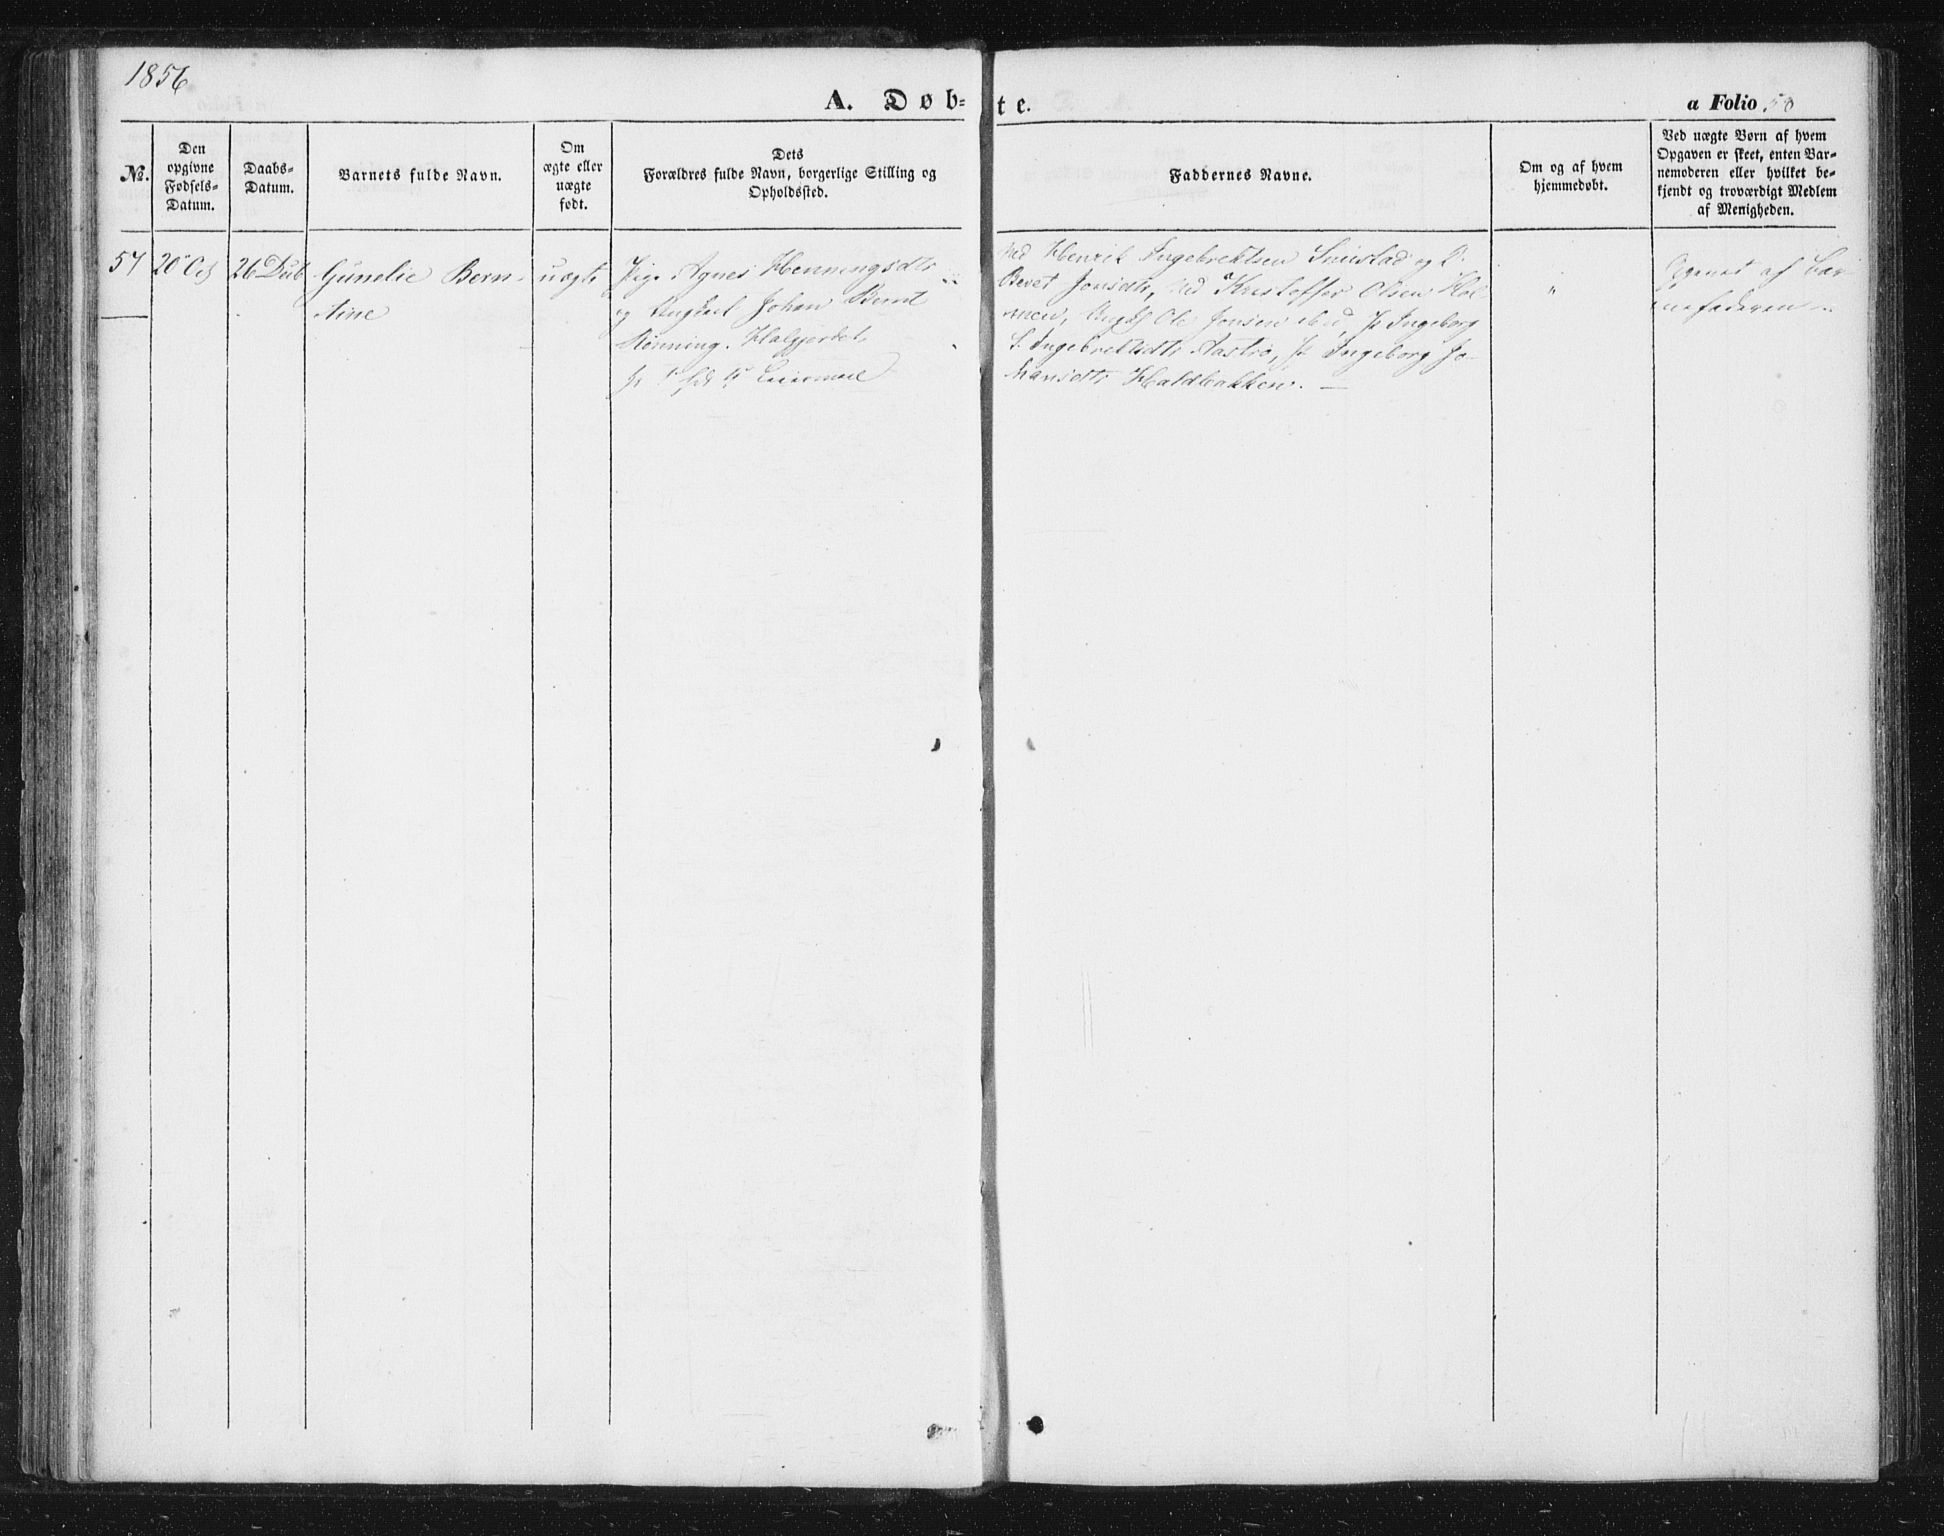 1856
A. Døb-
te.
a Folio 50
№.
Den
opgivne
Fødsels-
Datum.
Daabs-
Datum.
Barnets fulde Navn.
Om
ægte eller
uægte
født.
Dets
Forældres fulde Navn, borgerlige Stilling og
Opholdssted.
Faddernes Navne.
Om og af hvem
hjemmedøbt.
Ved uægte Børn af hvem
Opgaven er skeet, enten Bar-
nemoderen eller hvilket be-
kjendt og troværdigt Medlem
af Menigheden.
57
20 Oct
26 Dcb
Gunelie Bern-
tine
uægte
Pige Agnes Henningsdtr
og Ungkarl Johan Bernt
Rønning. Halgjerdet
Leiermaal
Henrik Ingebrektsen og
Beret Jonsdtr, Kristoffer Olsen Hol-
men, Ole Jonsen ibid, P. Ingeborg
Ingebrektsdtr Aastrø, P. Ingeborg Jo-
hansdtr Haldbakken. —
"
Opgivet af Bar-
nefaderen